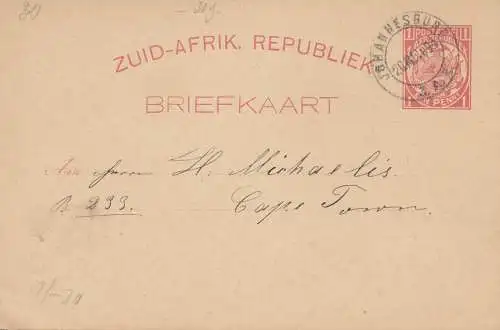 ZUID-AFRIK. REPUBLIEK
BRIEFKAART
JOHANNESBURG
1 1
EEN PENNY
Aan Herrn H. Michaelis.
B 233. Cape Town.